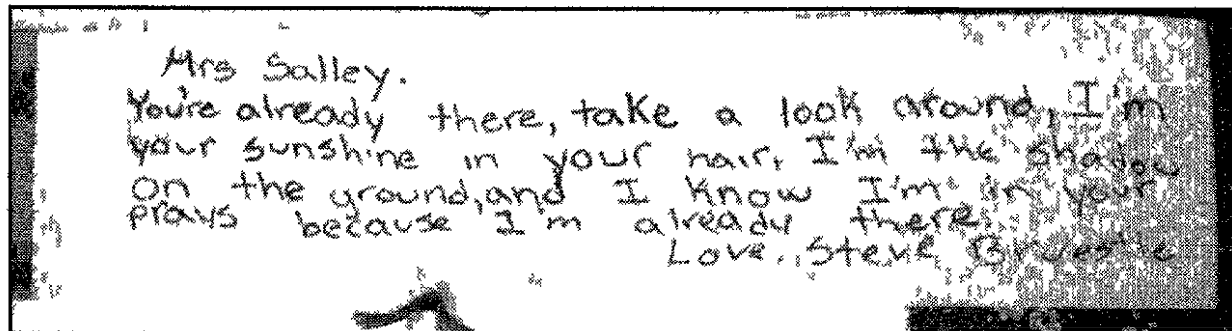 Mrs Salley.
You're already there, take a look around, I'm
your sunshine in your hair, I'm the shadow
on the ground, and I know I'm in your
prays because I'm already there.
Love, Steve